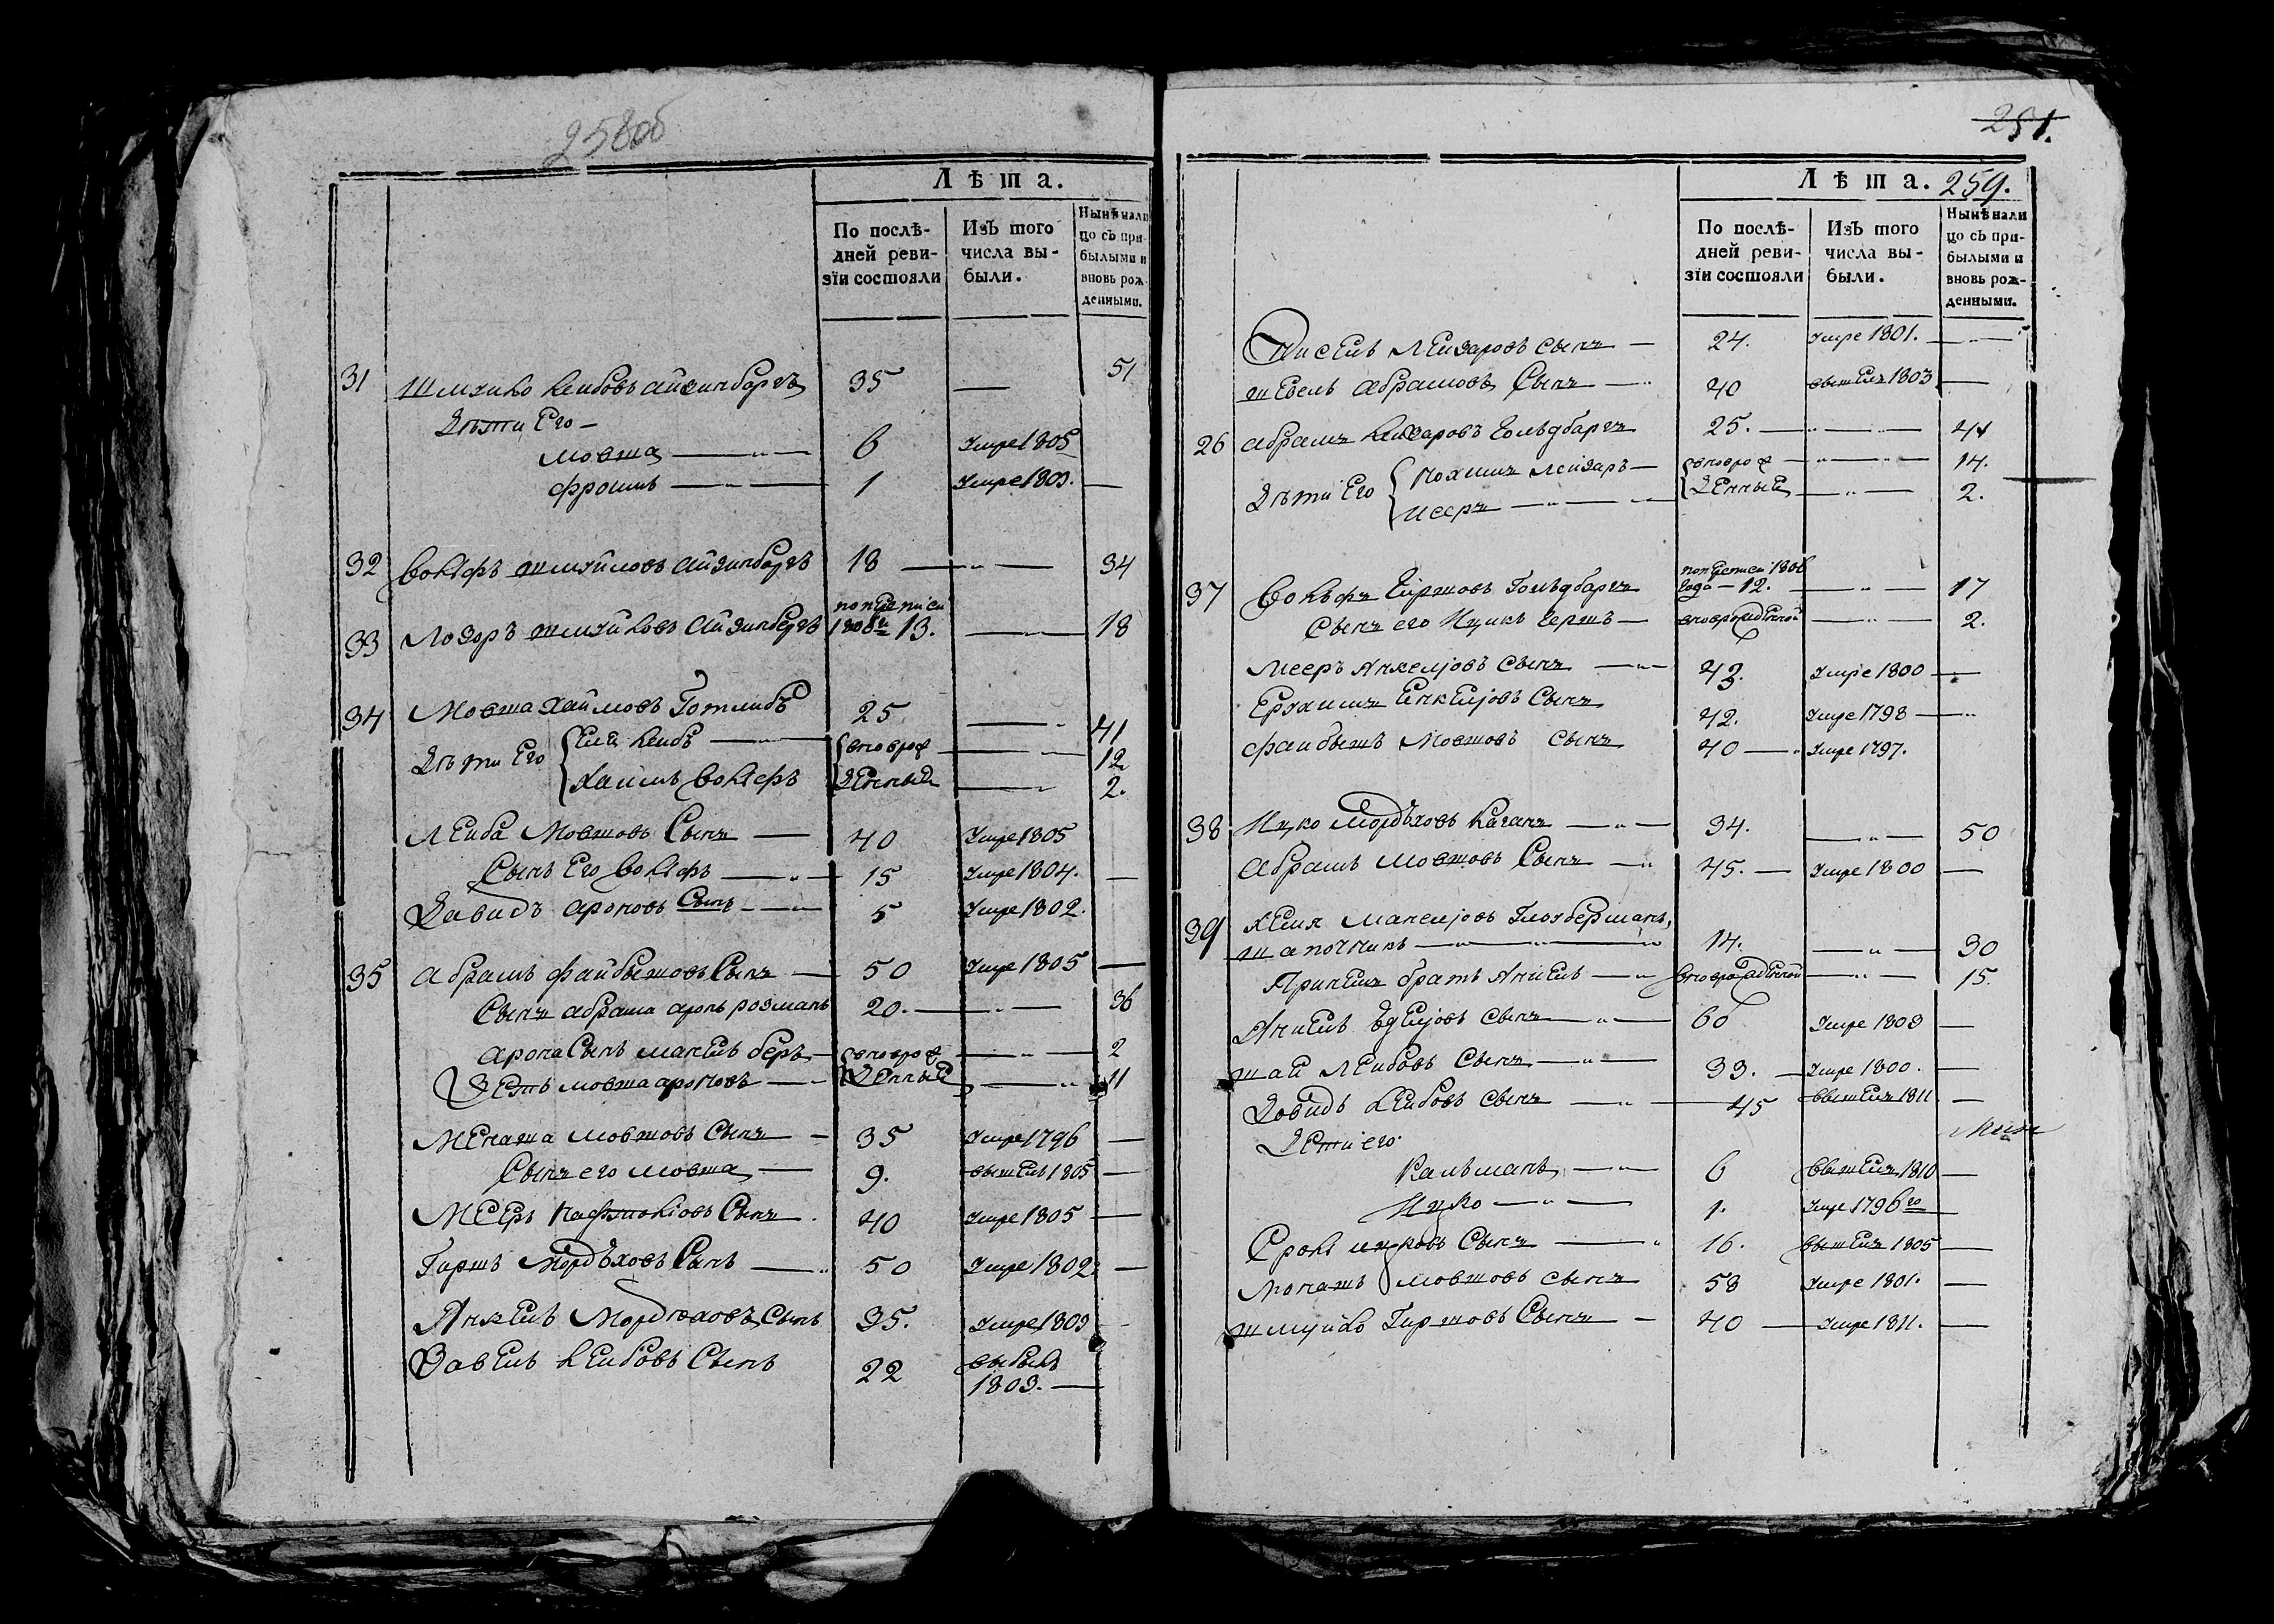 258об
Лѣта.
По послѣ-
дней реви-
зїи состояли
Изъ того
числа вы-
были.
Нынѣ нали
цо съ при-
былыми и
вновь рож
денными.
31 Шмуйло Лейбовъ Айзинбаргъ 35 — 51
Дѣти Его —
Мовша — 6 Умре 1805
Фроимъ — 1 Умре 1803. —
32 Вольфъ Шмуйловъ Айзинбаргъ 18 — 34
попереписи
33 Лозоръ Шмуйловъ Айзинбергъ 1808й 13. — 18
34 Мовша Хаймовъ Готлибъ 25 — 41
Дѣти Его { Ель Лейбъ — { вноврож — 12
Хаимъ Вольфъ { Денныи — 2.
Лейба Мовшовъ Сынъ — 40 Умре 1805
Сынъ Его Вольфъ — 15 Умре 1804. —
Давидъ Ароновъ Сынъ — 5 Умре 1802.
35 Абрамъ Файбышовъ Сынъ — 50 Умре 1805 —
Сынъ Абрама Аронъ Розманъ 20. — 36
Арона Сынъ Манель Беръ — { вновро ж — 2
Зеть Мовша Ароновъ — { Денные — 11
Менаша Мовшовъ Сынъ — 35 Умре 1796 —
Сынъ его Мовша — 9. вышелъ 1805 —
Мееръ Нафтоліовъ Сынъ. 40 Умре 1805 —
Гиршъ Мордъховъ Сынъ — 50 Умре 1802. —
Янкель Мордюховъ Сынъ 35. Умре 1803
Завель Лейбовъ Сынъ 22 выбылъ
1803. —
251.
Лѣта. 259.
По послѣ-
дней реви-
зїи состояли
Изъ того
числа вы-
были.
Нынѣ нали
цо съ при-
былыми и
вновь рож-
денными.
Лейзаровъ Сынъ — 24. Умре 1801. —
Шевель Абрамовъ Сынъ — 40 вышелъ 1803 —
26 Абрамъ Лейзаровъ Гольдбаргъ 25. — 41
Дѣти Его { Нохимъ Лейзаръ — { вноврож — 14.
Исеръ — { Денныи — 2.
попереписи 1808
37 Вольфъ Гиршовъ Гольдбаргъ года — 12. — 17
Сынъ его Ицикъ Гершъ — вноврожденной — 2.
Мееръ Янкелїовъ Сынъ — 43. Умре 1800 —
Ерухимъ Енкелїовъ Сынъ 42. Умре 1798 —
Файбышъ Мовшовъ Сынъ 40 — Умре 1797.
38 Ицко Мордъховъ Каганъ — 34. — 50
Абрамъ Мовшовъ Сынъ — 45. — Умре 1800 —
39 Манелїовъ Глозберманъ,
Шапочникъ — 14. — 30
Приемъ братъ Анчель — вноврожденной — 15.
Анчель Сынъ — 60 Умре 1803 —
Шая Лейбовъ Сынъ — 33. — Умре 1800. —
Довидъ Лейбовъ Сынъ — 45 вышелъ 1811 —
Дети его.
Кальманъ — 6 вышелъ 1810 —
Ицко — 1. Умре 1796го —
Сроль Ицковъ Сынъ — 16. вышелъ 1805 —
Монашъ Мовшовъ Сынъ 58 Умре 1801. —
Шмуйло Гиршовъ Сынъ — 40 — Умре 1811. —